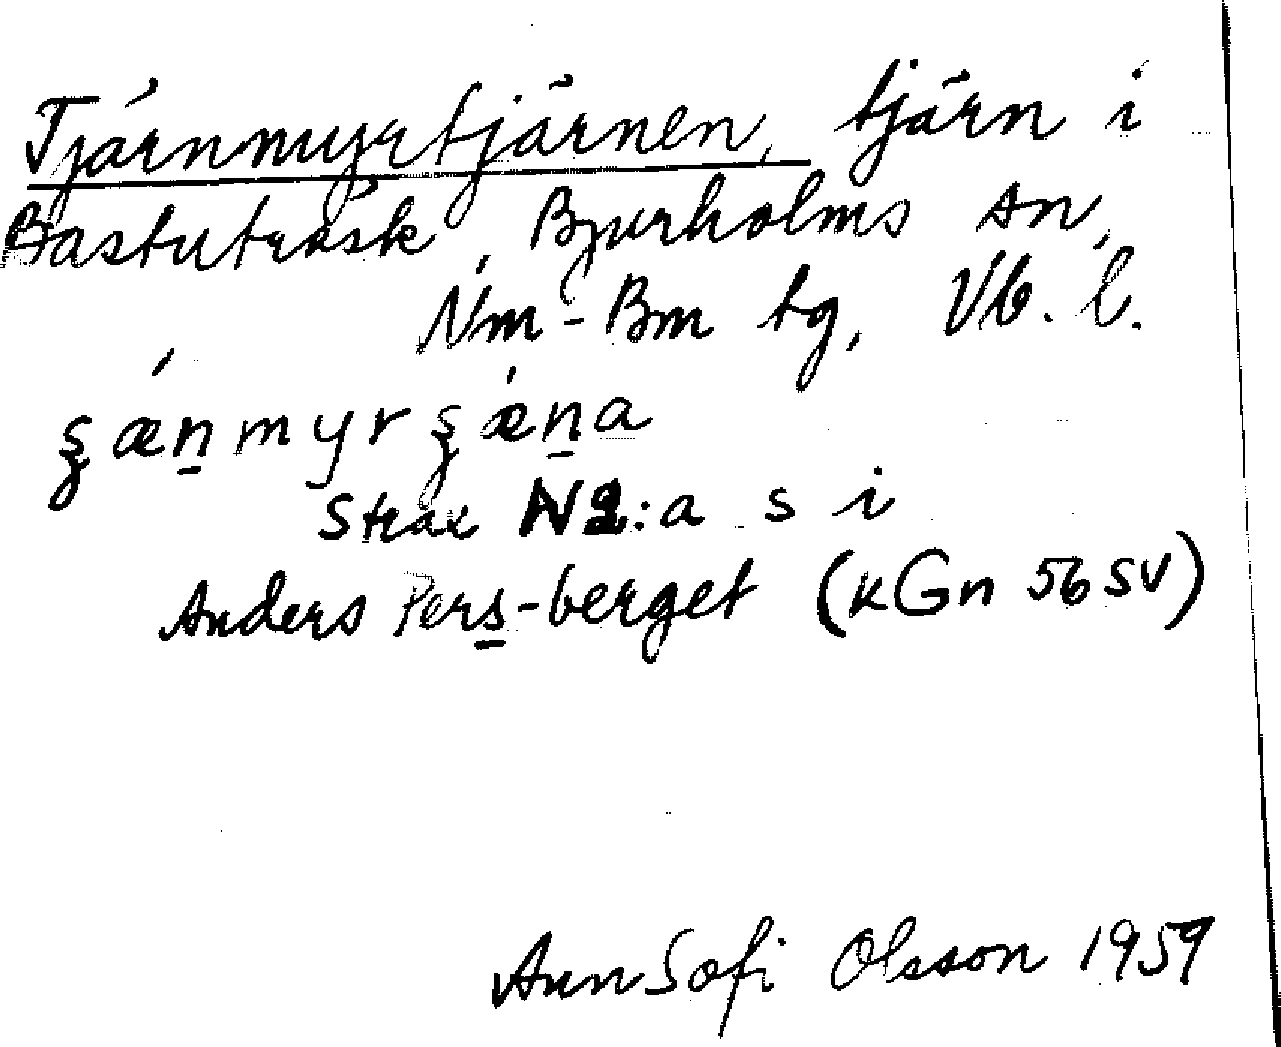 Tjärnmyrtjärnen, tjärn i
Bastuträsk, Bjurholms sn,
Nm-Bm tg, Vb. l.
Strax N2:a s i
Anders Pers-berget (kGn 56 SV)
AnnSofi Olsson 1959